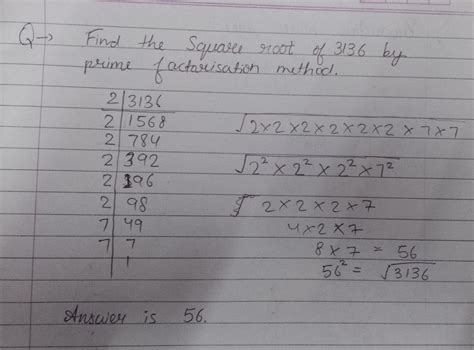 Q→ Find the Square root of 3136 by
prime factorisation method.
2 | 3136
2 | 1568
2 | 784
2 | 392
2 | 196
2 | 98
7 | 49
7 | 7
1
√2×2×2×2×2×2×7×7
√2²×2²×2²×7²
2×2×2×7
4×2×7
8×7 = 56
56² = √3136
Answer is 56.